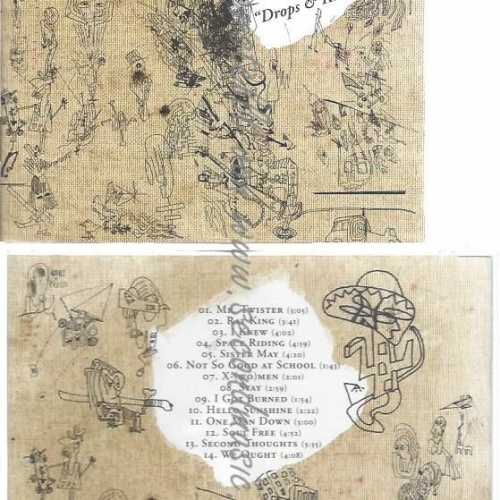 "Drops &
01. Mr. Twister (3:05)
02. King (3:41)
03. I Knew (4:02)
04. Space Riding (4:59)
05. Sister May (4:20)
06. Not So Good at School (1:43)
07. X-(wo)men (2:01)
08. Stay (2:59)
09. I Got Burned (1:54)
10. Hello Sunshine (2:22)
11. One Man Down (3:00)
12. Soul Free (4:52)
13. Second Thoughts (5:35)
14. Ought (4:08)